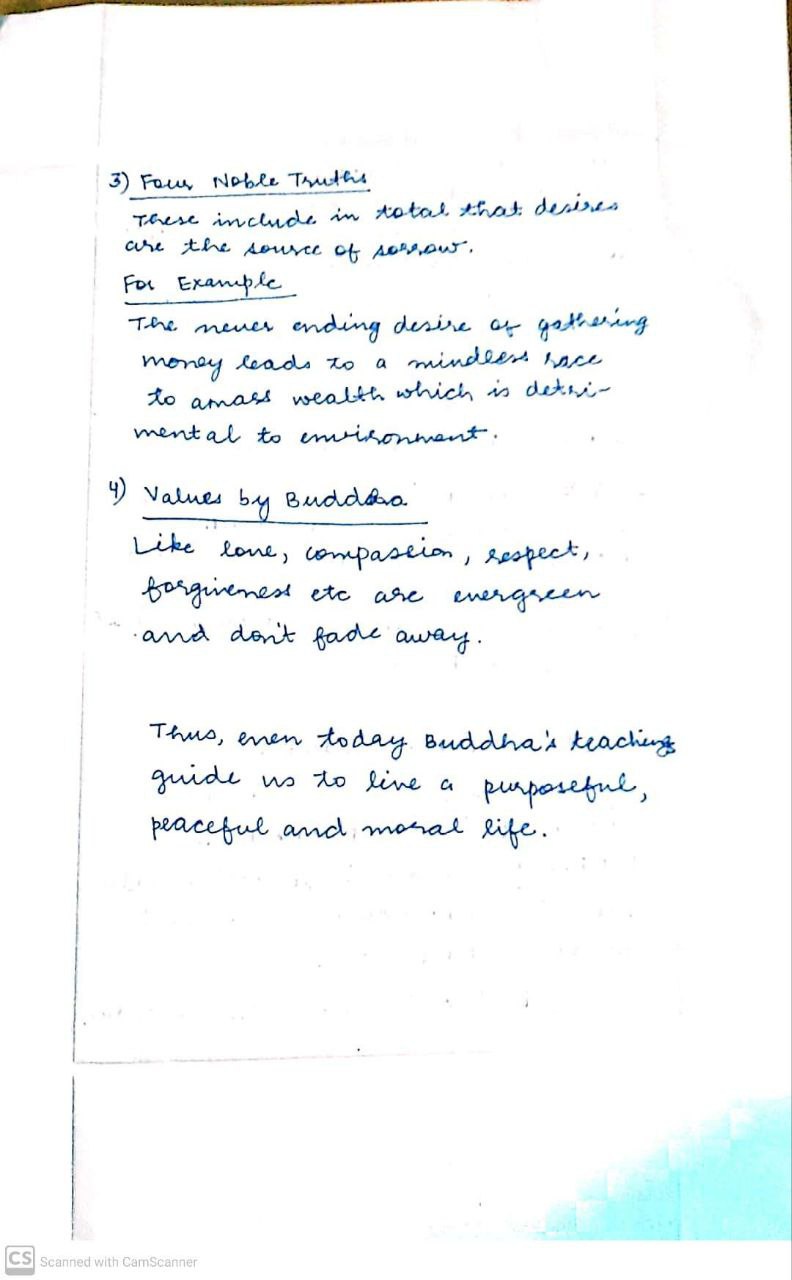 3) Four Noble Truths
These include in total that desires
are the source of sorrow.
For Example
The never ending desire of gathering
money leads to a mindless race
to amass wealth which is detri-
mental to environment.
4) Values by Buddha
Like love, compassion, respect,
forgiveness etc are evergreen
and don't fade away.
Thus, even today Buddha's teachings
guide us to live a purposeful,
peaceful and moral life.
CS Scanned with CamScanner